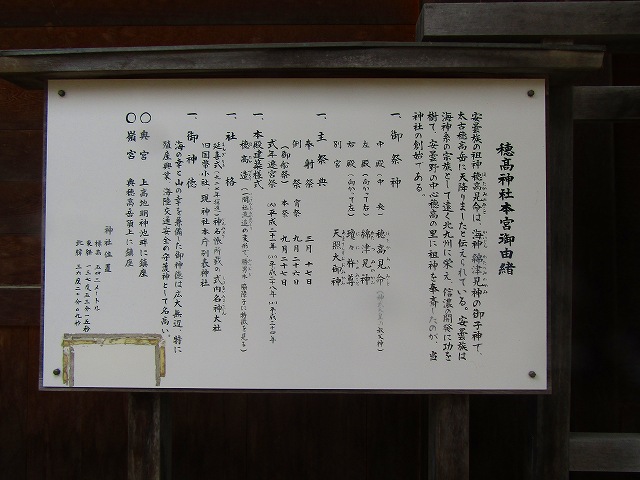 穂高神社本宮御由緒
安曇族の祖神 穂高見命は、海神 綿津見神の御子神で、
太古穂高岳に天降りましたと伝えられている。安曇族は
海神系の宗族として遠く北九州に栄え、信濃の開発に功を
樹て、安曇野の中心穂高の里に祖神を奉斎したのが、当
神社の創始である。
一、御祭神
中殿(中央) 穂高見命
左殿(向かって右) 綿津見神
右殿(向かって左) 瓊々杵尊
別宮 天照大御神
一、主祭典
奉射祭 三月十七日
例祭 宵祭 九月二十六日
(御船祭) 本祭 九月二十七日
式年遷宮祭
一、本殿建築様式
穂高造
一、社格
延喜式(九二七年撰進)神名帳所載の式内名神大社
旧国幣小社 現神社本庁別表神社
一、御神徳
海の幸と山の幸を兼備した御神徳は広大無辺、特に
殖産興業、海陸交通安全の守護神として名高い。
〇奥宮 上高地明神池畔に鎮座
〇嶺宮 奥穂高岳頂上に鎮座
神社位置
標高
東経
北緯